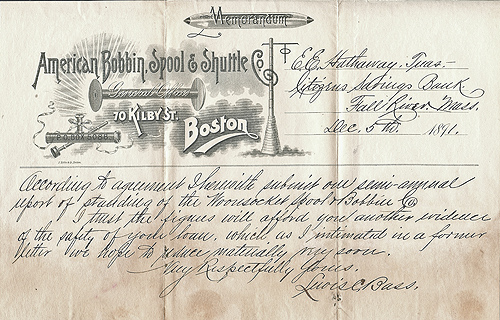 Memorandum
American Bobbin, Spool & Shuttle Co
General Office
70 KILBY ST.
Boston
E.E. Hathaway, Treas.-
Citizens Savings Bank.
Fall River Mass.
Dec. 5th. 1891.
According to agreement I herewith submit our semi-annual
report of standing of the Woonsocket Spool & Bobbin Co
I trust the figures will afford you another evidence
of the safety of your loan, which as I intimated in a former
letter we hope to reduce materially very soon.
Very Respectfully Yours.
Lewis C. Bass.